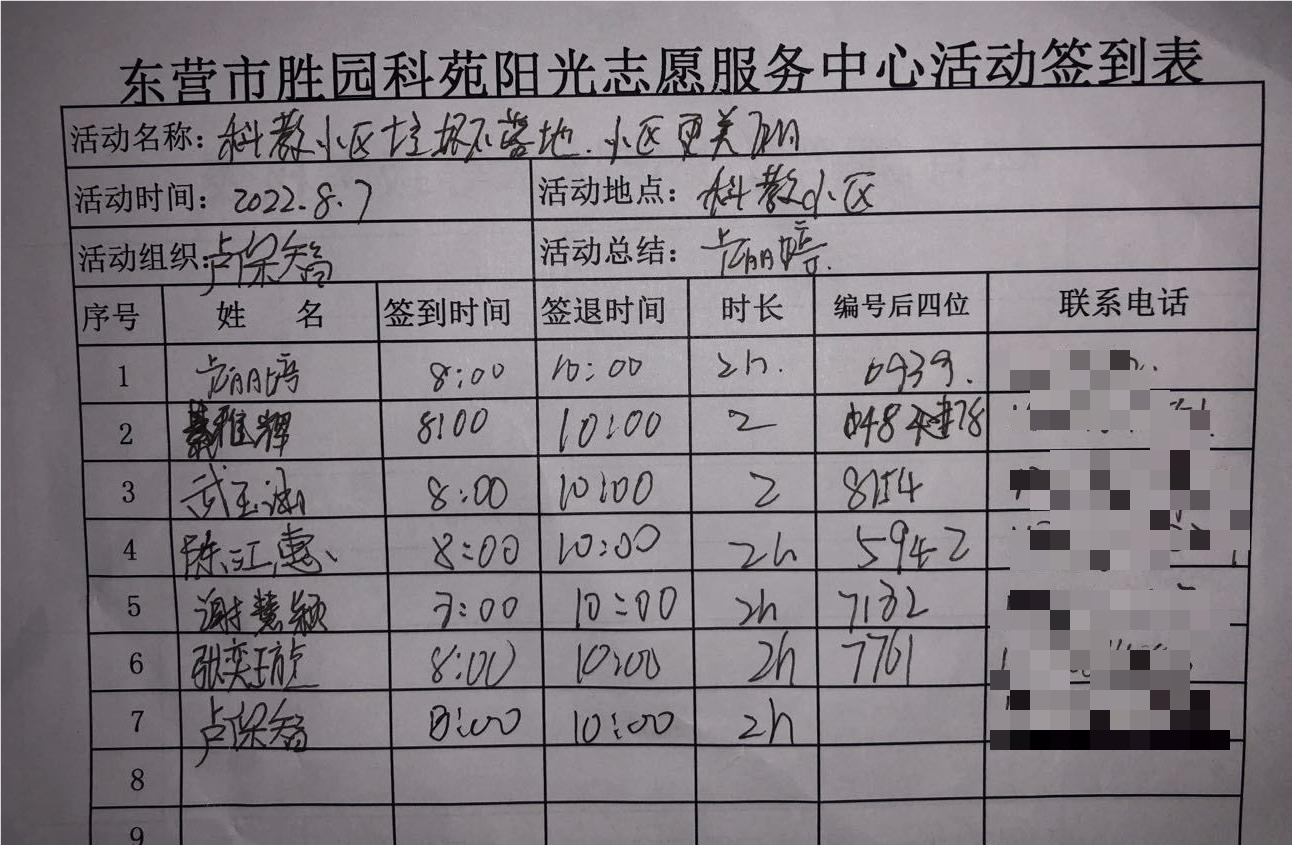 东营市胜园科苑阳光志愿服务中心活动签到表
活动名称：科教小区垃圾不落地.小区更美丽
活动时间：2022.8.7 活动地点：科教小区
活动组织：卢保智 活动总结：
序号 姓 名 签到时间 签退时间 时长 编号后四位 联系电话
1 8:00 10:00 2h. 0939.
2 雅辉 8:00 10:00 2
3 武玉 8:00 10:00 2 8154
4 陈江惠 8:00 10:00 2h 5942
5 谢慧颖 :00 10:00 2h 7132
6 张奕 8:00 10:00 2h 7761
7 卢保智 8:00 10:00 2h
8
9